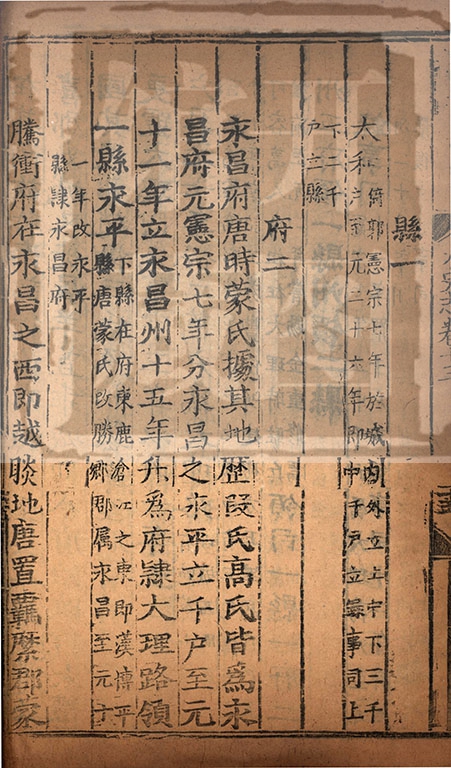 縣一
太和倚郭憲宗七年於城內外立上中下三千
户至元二十六年即中千户立錄事司上
下二千
户立縣
府二
永昌府唐時蒙氏據其地歴段氏髙氏皆爲永
昌府元憲宗七年分永昌之永平立千户至元
十一年立永昌州十五年升爲府隷大理路領
一縣永平下縣在府東鹿滄江之東即漢博平
縣唐蒙氏改勝鄉郡屬永昌至元十
一年改永平
縣隷永昌府
騰衝府在永昌之西即越賧地唐置羈縻郡蒙